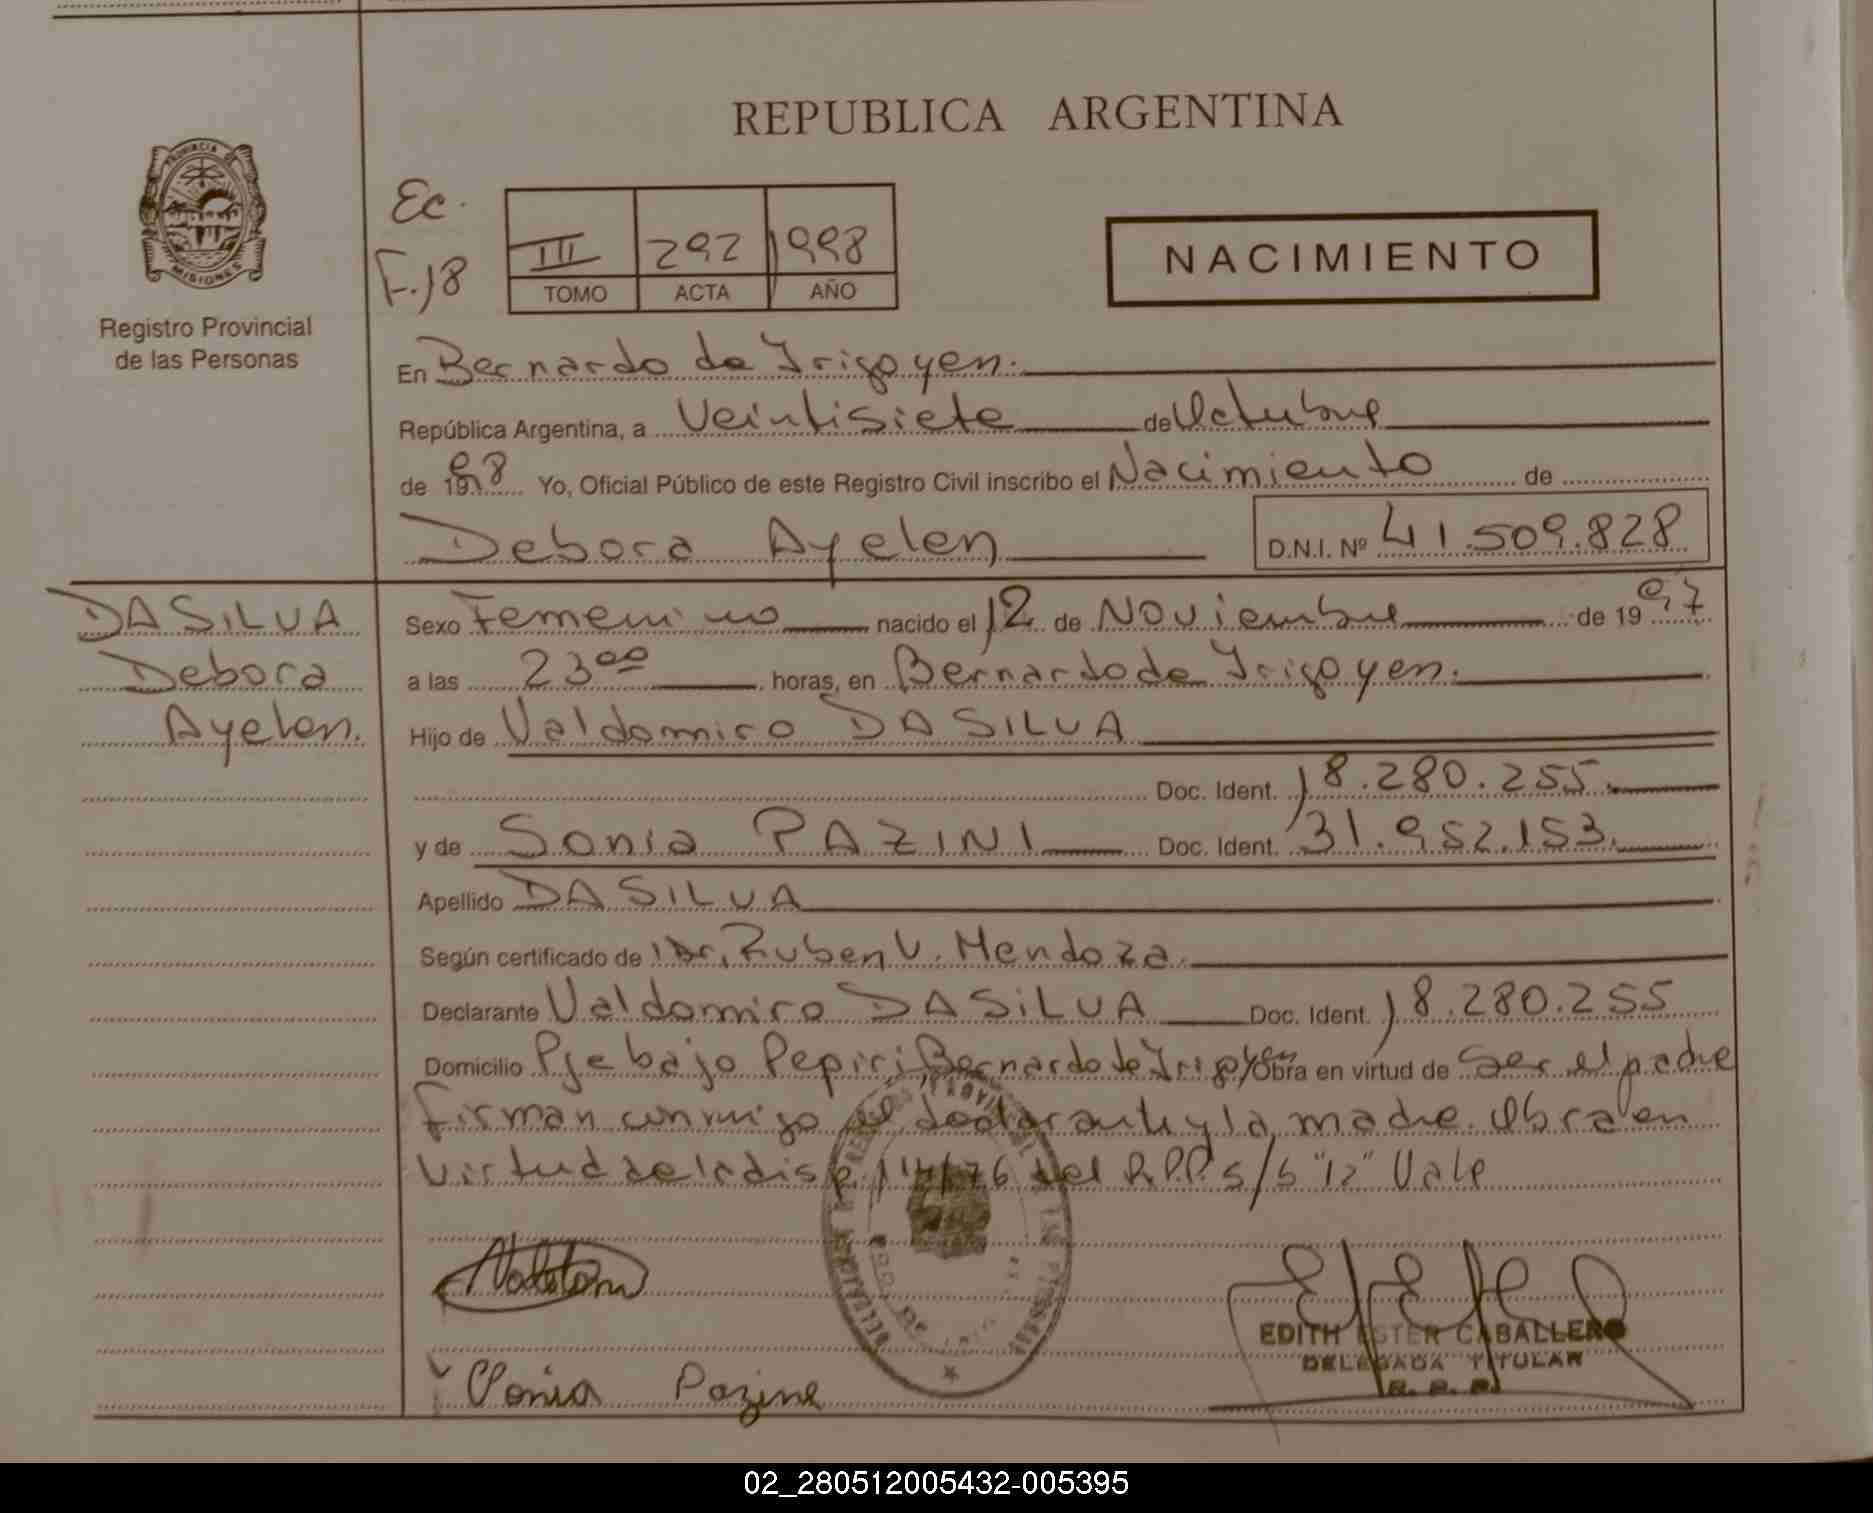 REPUBLICA ARGENTINA
PROVINCIA DE
MISIONES
Registro Provincial
de las Personas
Ec.
F.18
III 292 1998
TOMO ACTA AÑO
NACIMIENTO
En Bernardo de Irigoyen.
República Argentina, a Veintisiete de Octubre
de 1998 Yo, Oficial Público de este Registro Civil inscribo el Nacimiento de
Debora Ayelen D.N.I. Nº 41.509.828
DA SILVA
Debora
Ayelen.
Sexo Femenino nacido el 12 de Noviembre de 1997
a las 23 00 horas, en Bernardo de Irigoyen.
Hijo de Valdomiro DA SILVA
Doc. Ident. 18.280.255.
y de Sonia PAZINI Doc. Ident. 31.952.153.
Apellido DA SILVA
Según certificado de Dr. Ruben V. Mendoza.
Declarante Valdomiro DA SILVA Doc. Ident. 18.280.255
Domicilio Pje bajo Pepiri Bernardo de Irigoyen Obra en virtud de Ser el padre
firman conmigo el declarante y la madre. Obra en
virtud de la disp 114/76 del R.P.P. s/b "12" Vale
Sonia Pazine
EDITH ESTER CABALLERO
DELEGADA TITULAR
R. P. P.
02_280512005432-005395